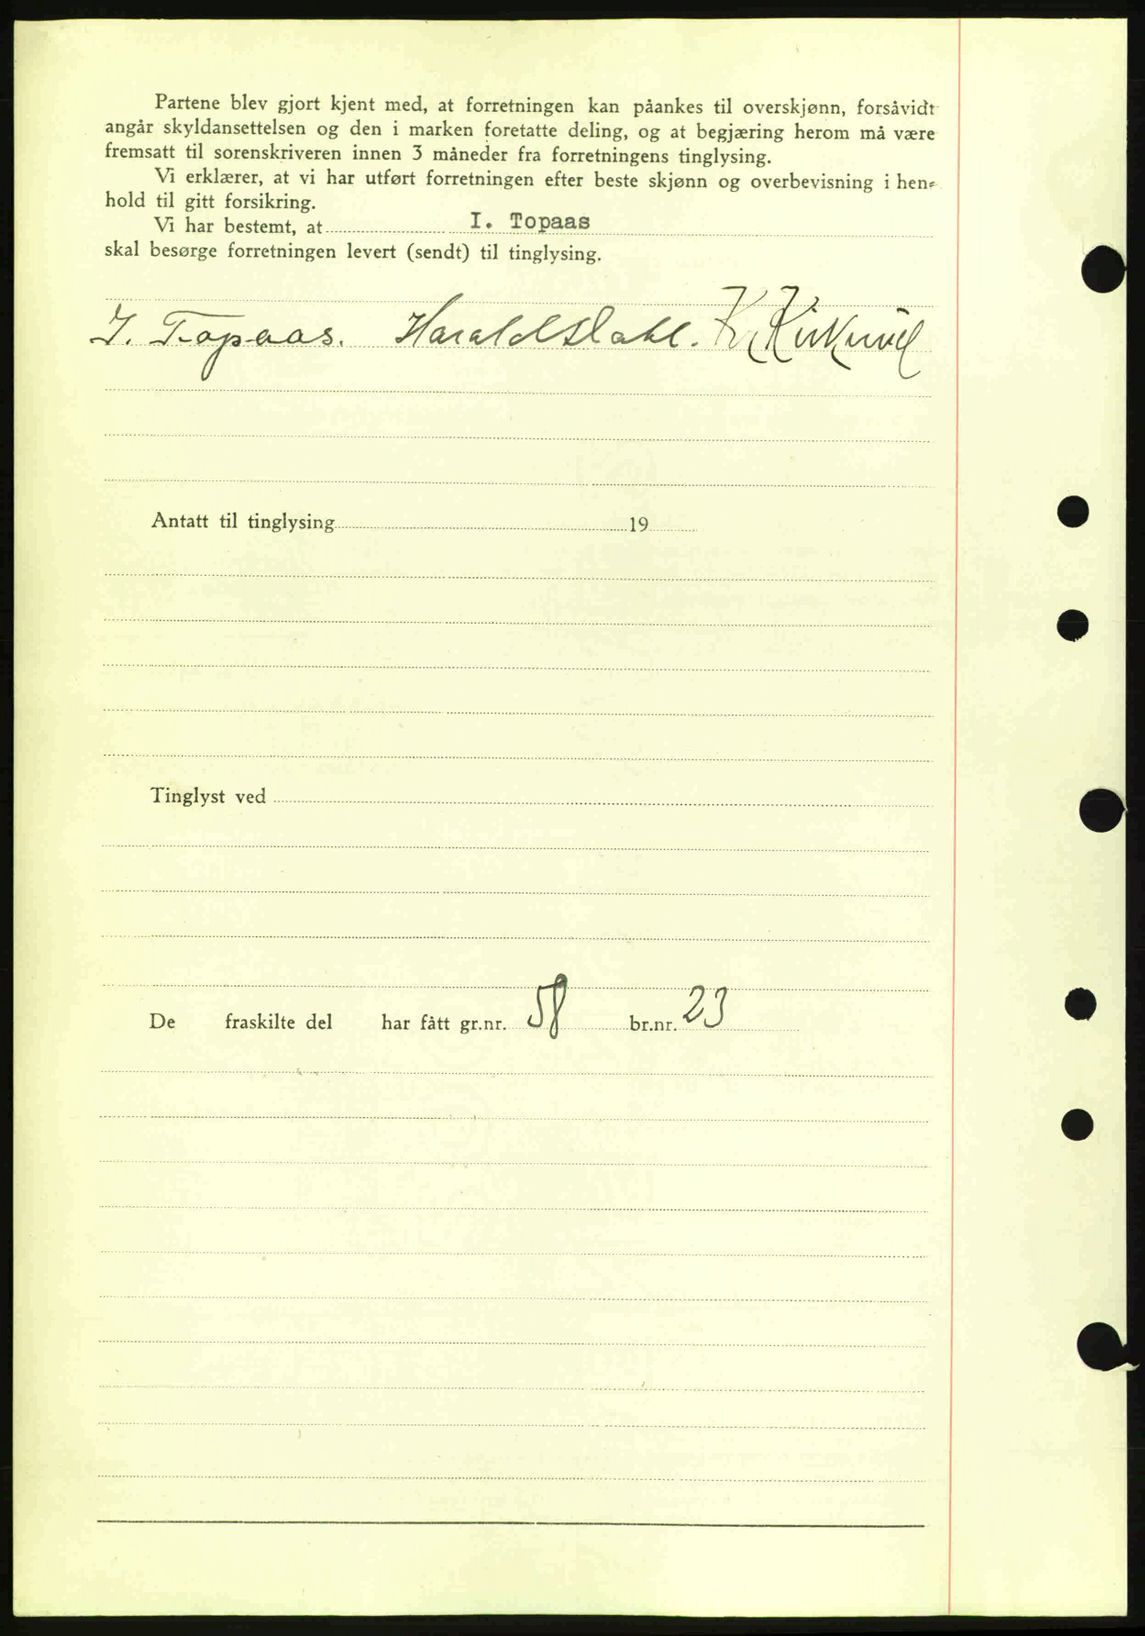 Partene blev gjort kjent med, at forretningen kan påankes til overskjønn, forsåvidt
angår skyldansettelsen og den i marken foretatte deling, og at begjæring herom må være
fremsatt til sorenskriveren innen 3 måneder fra forretningens tinglysing.
Vi erklærer, at vi har utført forretningen efter beste skjønn og overbevisning i hen-
hold til gitt forsikring.
Vi har bestemt, at I. Topaas
skal besørge forretningen levert (sendt) til tinglysing.
I. Topaas. Harald Stahl. K. Kirknes
Antatt til tinglysing 19
Tinglyst ved
De fraskilte del har fått gr.nr. 58 br.nr. 23